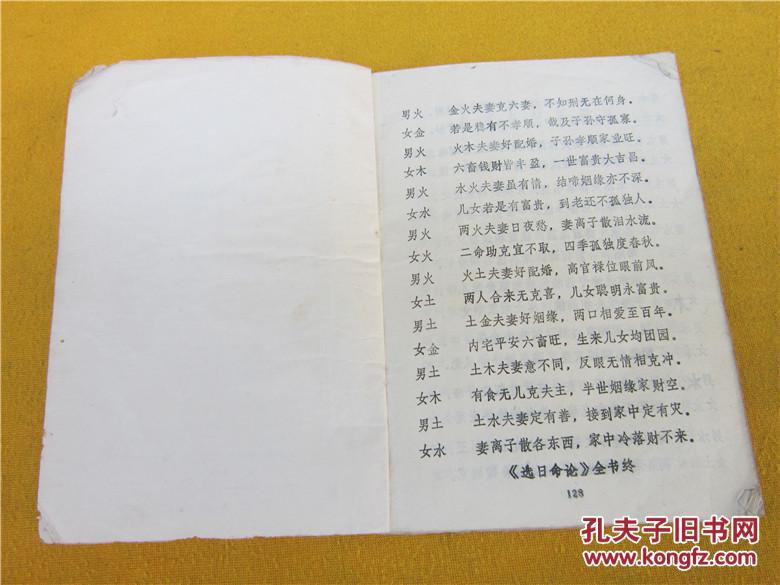 男火 金火夫妻克六妻，不知刑无在何身。
女金 若是稳有不孝顺，截及子孙守孤寡。
男火 火木夫妻好配婚，子孙孝顺家业旺。
女木 六畜钱财皆丰盈，一世富贵大吉昌。
男火 水火夫妻虽有情，结啼姻缘亦不深。
女水 儿女若是有富贵，到老还不孤独人。
男火 两火夫妻日夜愁，妻离子散泪水流。
女火 二命助克宜不取，四季孤独度春秋。
男火 火土夫妻好配婚，高官禄位眼前风。
女土 两人合来无克喜，儿女聪明永富贵。
男土 土金夫妻好姻缘，两口相爱至百年。
女金 内宅平安六畜旺，生来儿女均团园。
男土 土木夫妻意不同，反眼无情相克冲。
女木 有食无儿克夫主，半世姻缘家财空。
男土 土水夫妻定有善，接到家中定有灾。
女水 妻离子散各东西，家中冷落财不来。
《选日命论》全书终
128
孔夫子旧书网
www.kongfz.com